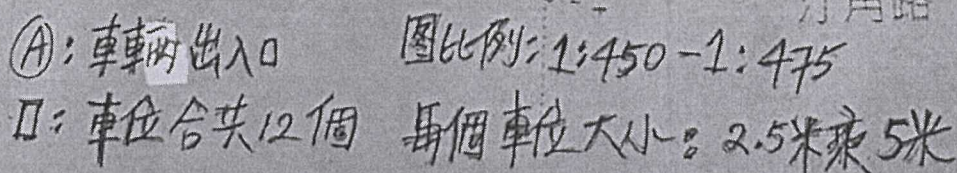 Ⓐ:車輛出入口 图比例:1:450-1:475
▯:車位合共12個 每個車位大小:2.5米乘5米